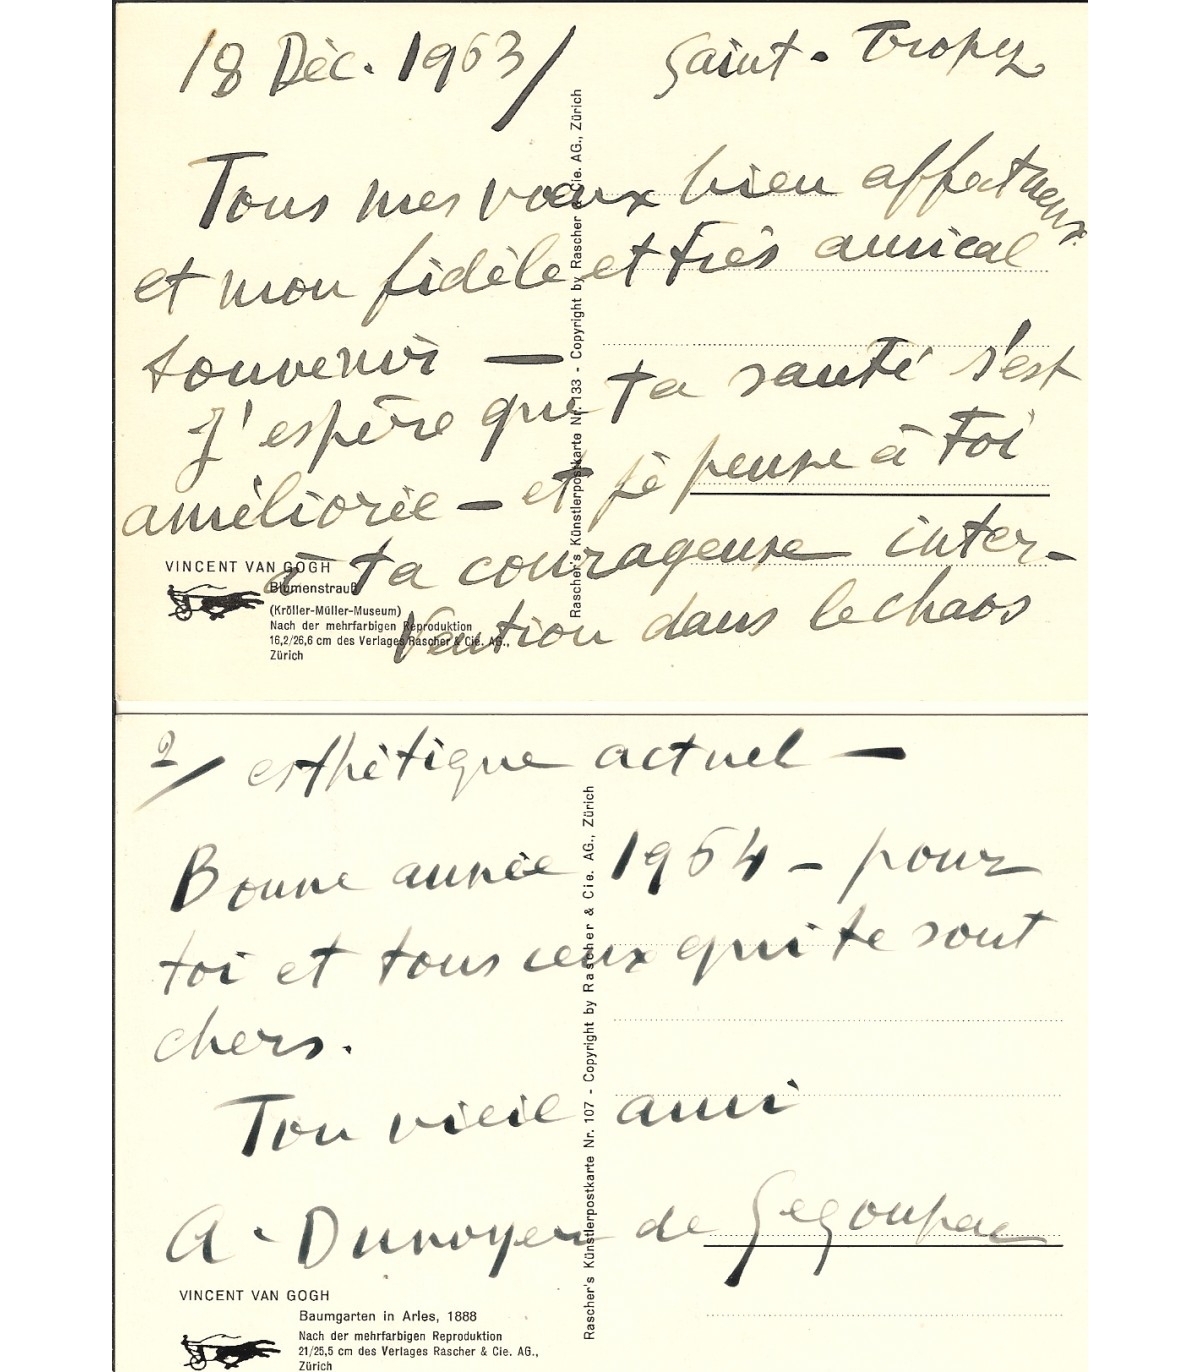 18 Déc. 1963/ Saint-Tropez
Tous mes vœux bien affectueux
et mon fidèle et très amical
souvenir —
J'espère que ta santé s'est
améliorée — et je pense à toi
à ta courageuse inter-
vention dans le chaos
VINCENT VAN GOGH
Blumenstrauß
(Kröller-Müller-Museum)
Nach der mehrfarbigen Reproduktion
16,2/26,6 cm des Verlages Rascher & Cie. AG.,
Zürich
Rascher's Künstlerpostkarte Nr. 133 - Copyright by Rascher & Cie. AG., Zürich
2/ esthétique actuel —
Bonne année 1964 — pour
toi et tous ceux qui te sont
chers.
Ton vieil ami
A. Dunoyer de Segonzac
VINCENT VAN GOGH
Baumgarten in Arles, 1888
Nach der mehrfarbigen Reproduktion
21/25,5 cm des Verlages Rascher & Cie. AG.,
Zürich
Rascher's Künstlerpostkarte Nr. 107 - Copyright by Rascher & Cie. AG., Zürich